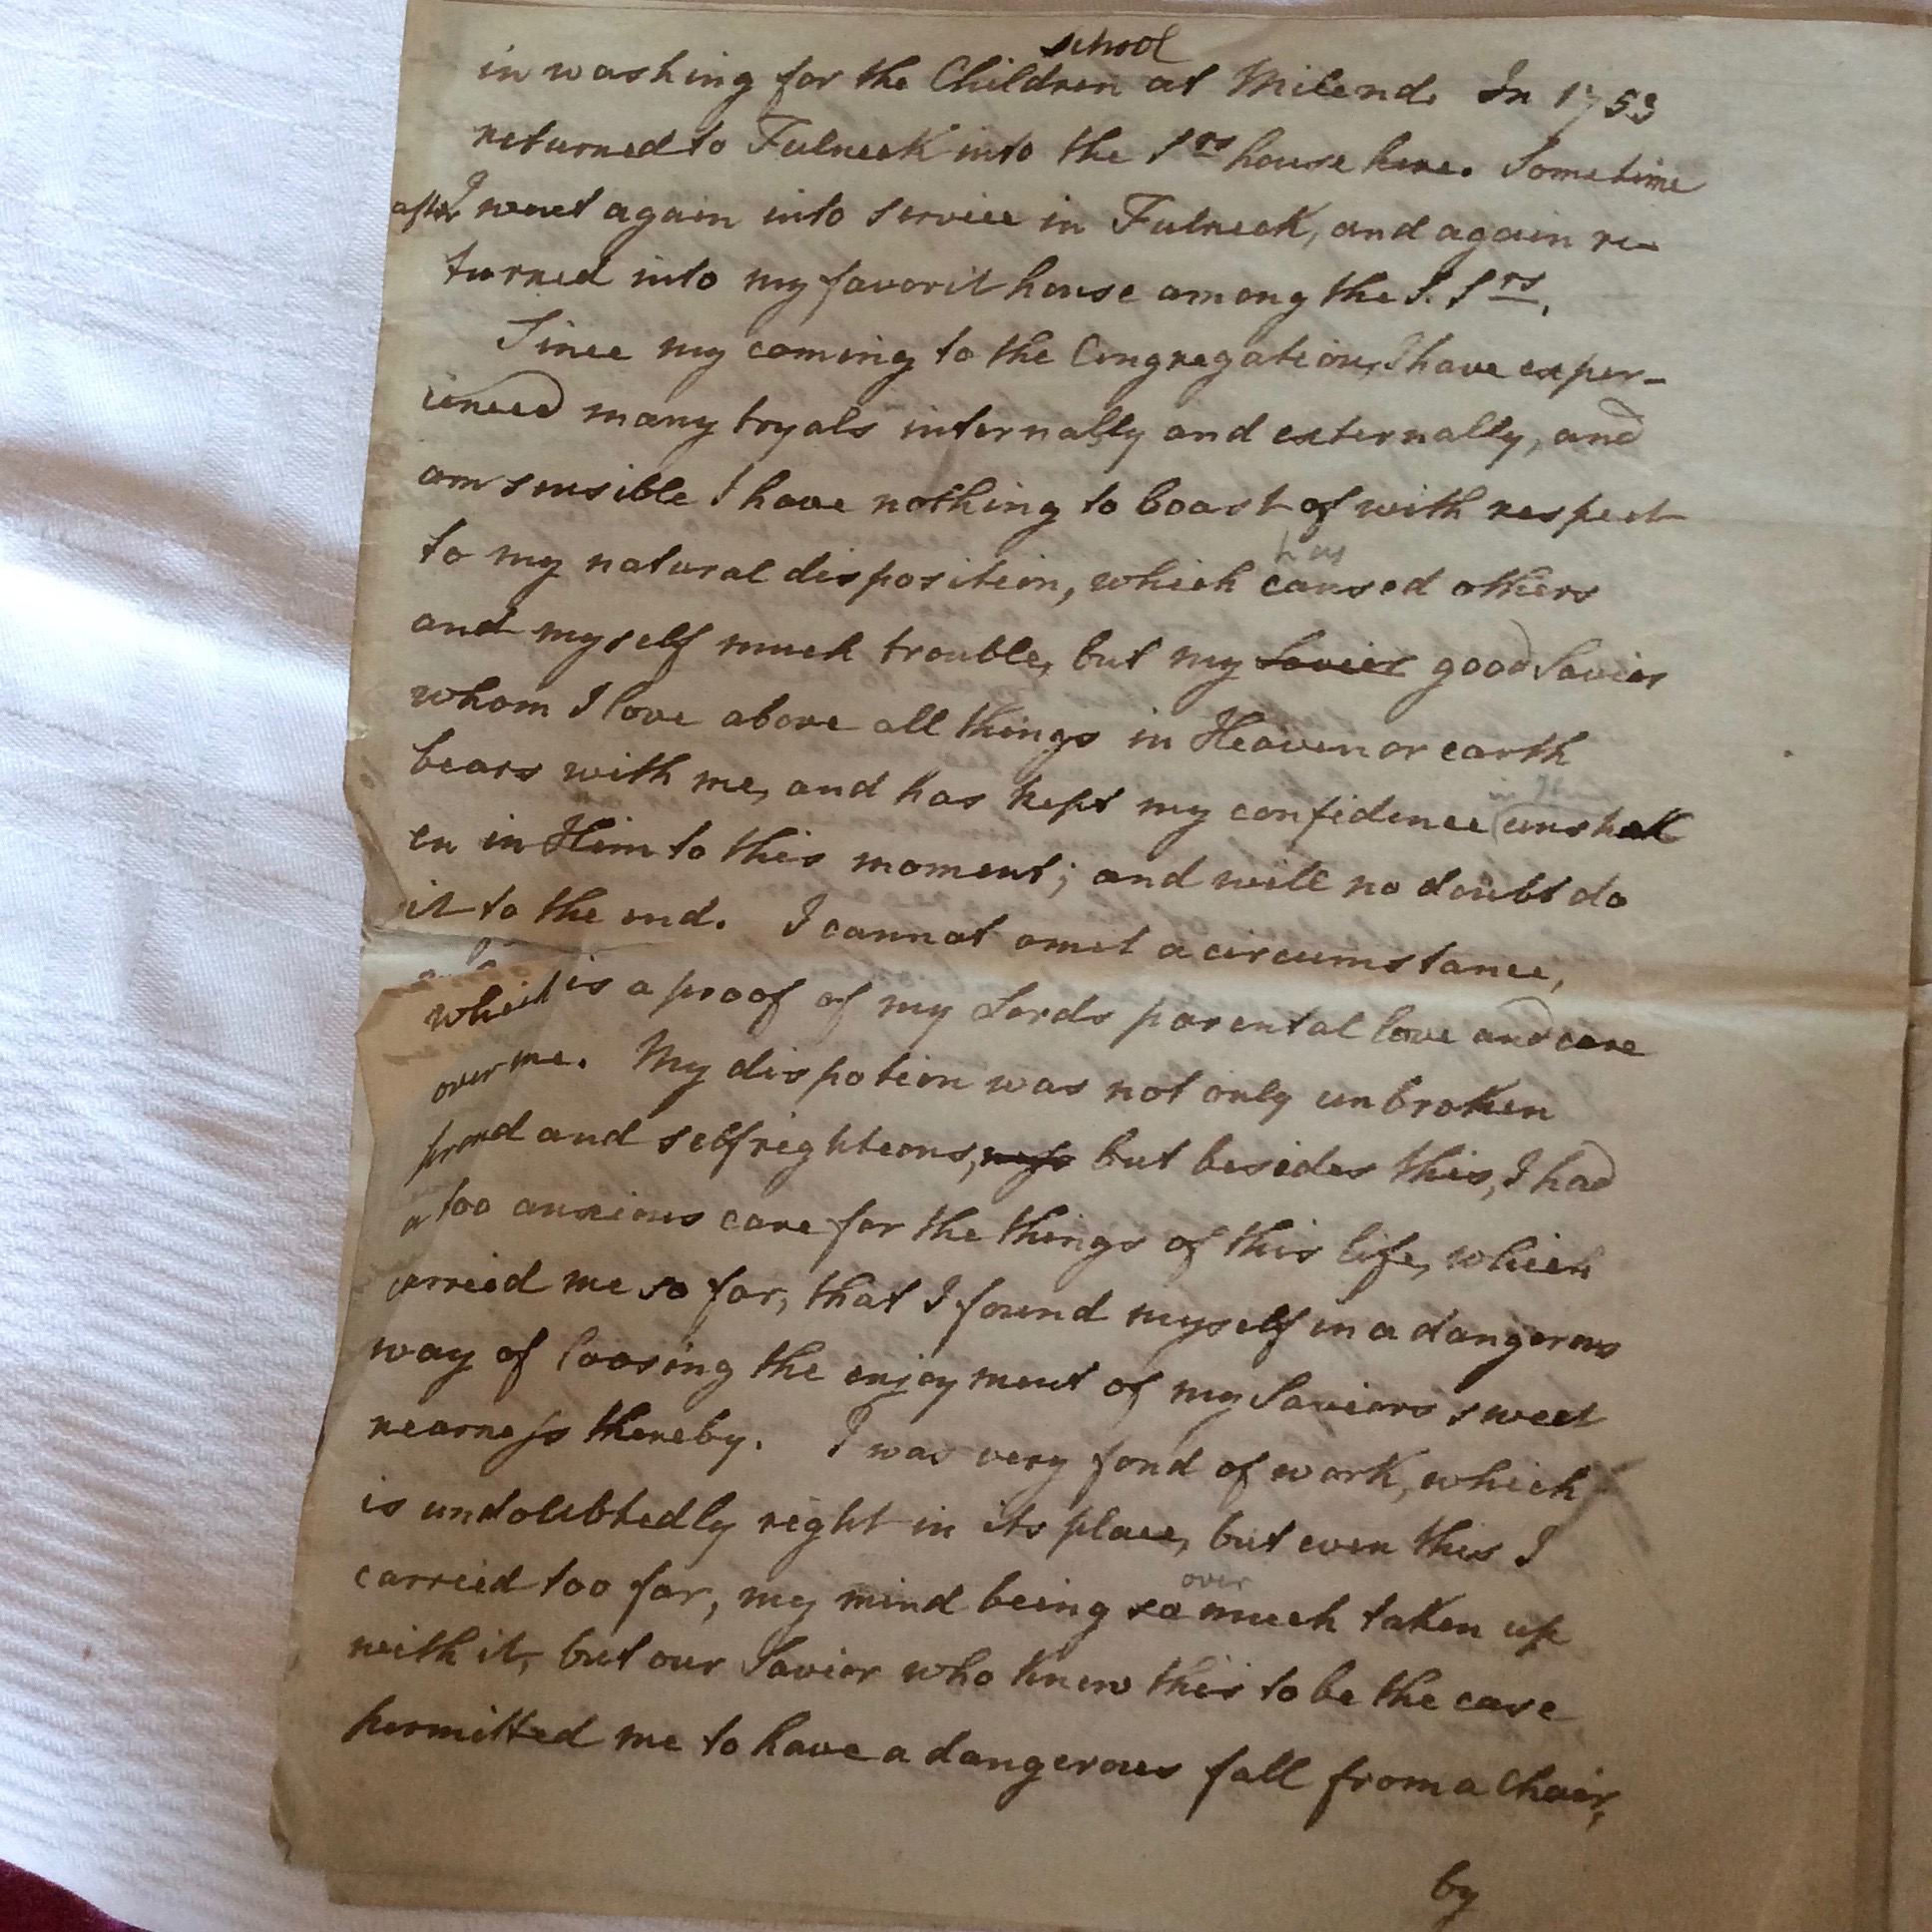 school
in washing for the Children at Milend. In 1753
returned to Fulneck into the Srs house here. Sometime
after I went again into service in Fulneck, and again re-
turned into my favorit house among the S. Srs.
Since my coming to the Congregation, I have exper-
ienced many tryals internally and externally, and
am sensible I have nothing to boast of with respect
has
to my natural disposition, which caused others
and myself much trouble, but my Savier good Savior
whom I love above all things in Heaven or earth
bears with me, and has kept my confidence (unshak
in Him
en in Him to this moment; and will no doubt do
it to the end. I cannot omit a circumstance,
which is a proof of my Lords parental love and care
over me. My dispotion was not only unbroken
proud and selfrighteous, ness but besides this, I had
a too anxious care for the things of this life, which
carried me so far, that I found myself in a dangerous
way of loosing the enjoyment of my Saviors sweet
nearness thereby. I was very fond of work, which
is undoubtedly right in its place, but even this I
over
carried too far, my mind being so much taken up
with it, but our Savior who knew this to be the case
permitted me to have a dangerous fall from a Chair,
by